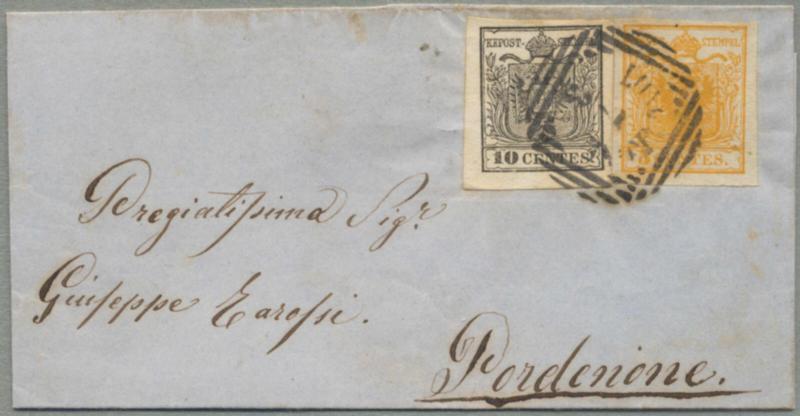 KKPOST-STEMPEL
10 CENTES.
STEMPEL
5 CENTES.
Pregiatissima Sigr.
Giuseppe Earossi.
Pordenone.